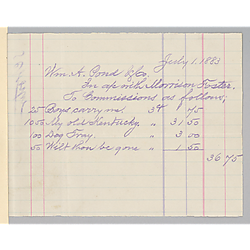 July 1. 1883
Wm A. Pond & Co,
In a/c with Morrison Foster.
To Commissions as follow,
25 Boys carry me. 3¢ 75
1050 My old Kentucky. " 31 50
100 Dog Tray. " 3 00
50 Wilt thou be gone " 1 50
36 75